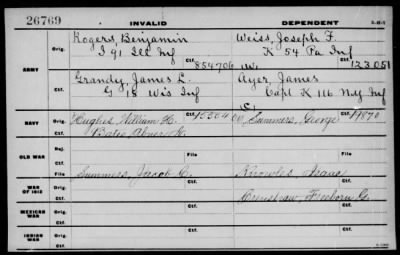 26769 INVALID DEPENDENT
Orig. Rogers, Benjamin Weiss, Joseph F.
I 91 Ill Inf K 54 Pa Inf
Ctf. 854706 W. Ctf. 123051
ARMY
Orig. Grandy, James L. Ayer, James
G 18 Wis Inf Capt K 116 Inf
Ctf.
NAVY Orig. Hughes, William H. Summers, George
Ctf. Bates, Abner Ctf.
OLD WAR Rej.
Ctf. File File
WAR OF 1812 Orig. Summers, Jacob C. Knowles, Isaac
Ctf. Ctf. Crenshaw, Freeborn G.
MEXICAN WAR Orig.
Ctf. Ctf.
INDIAN WAR Orig.
Ctf. Ctf.